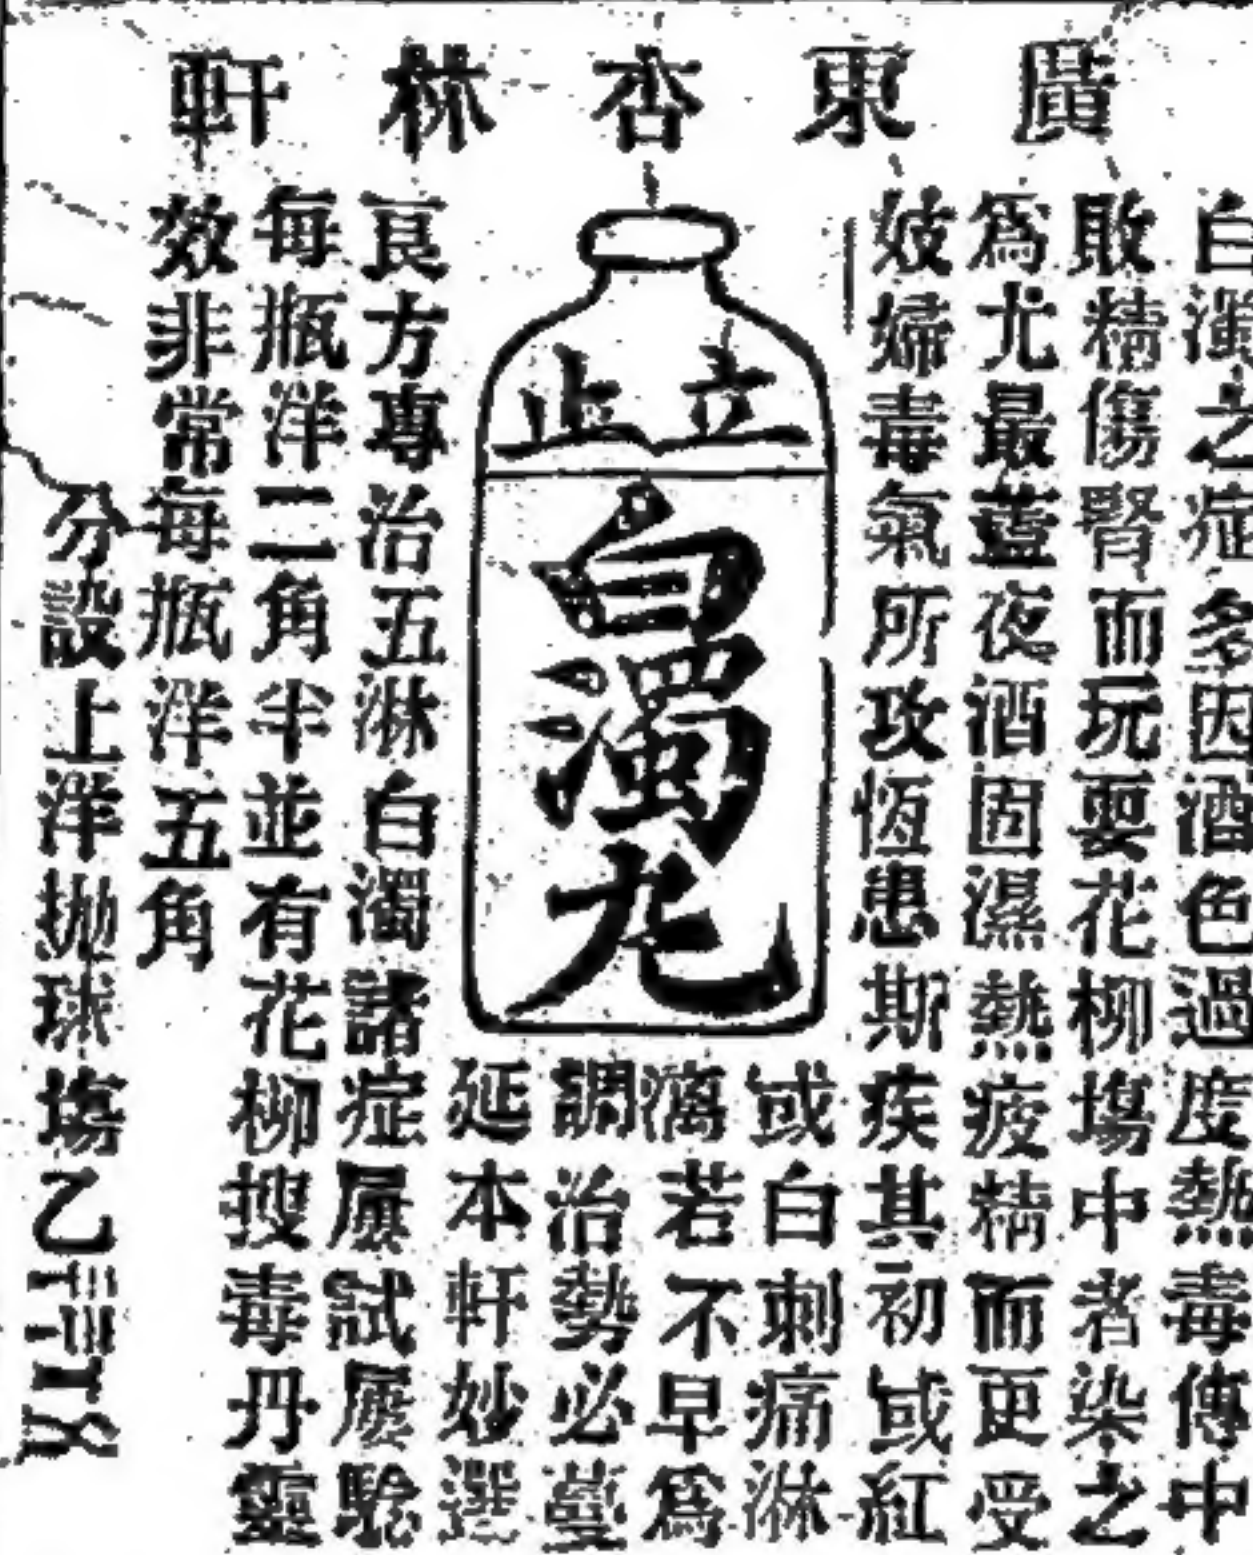 廣東杏林軒
立止
白濁丸
白濁之症多因酒色過度熱毒傳中
敗精傷腎而玩耍花柳塲中者染之
爲尤最蓋夜酒固濕熱疲精而更受
妓婦毒氣所攻恆患斯疾其初或紅
或白刺痛淋
漓若不早爲
調治勢必蔓
延本軒妙選
良方專治五淋白濁諸症屢試屢騐
每瓶洋二角半並有花柳搜毒丹靈
效非常每瓶洋五角
分設上洋抛球塲